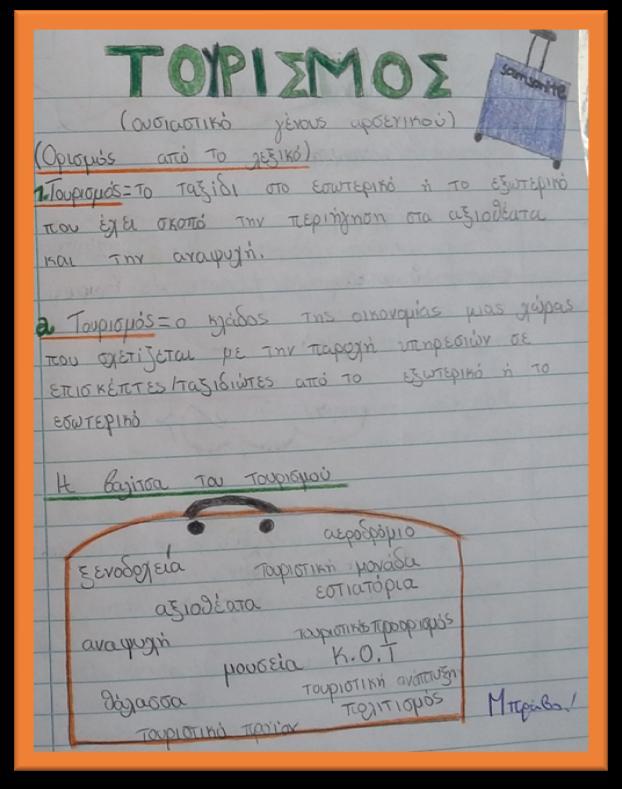 ΤΟΥΡΙΣΜΟΣ
samsonite
(ουσιαστικό γένους αρσενικού)
(Ορισμός από το λεξικό)
1.Τουρισμός=το ταξίδι στο εσωτερικό ή το εξωτερικό
που έχει σκοπό την περιήγηση στα αξιοθέατα
και την αναψυχή.
2. Τουρισμός=ο κλάδος της οικονομίας μιας χώρας
που σχετίζεται με την παροχή υπηρεσιών σε
επισκέπτες/ταξιδιώτες από το εξωτερικό ή το
εσωτερικό
Η βαλίτσα του τουρισμού
αεροδρόμιο
ξενοδοχεία τουριστική μονάδα
αξιοθέατα εστιατόρια
αναψυχή τουριστικός προορισμός
μουσεία Κ.Ο.Τ
θάλασσα τουριστική ανάπτυξη
τουριστικό προϊόν πολιτισμός
Μπράβο!